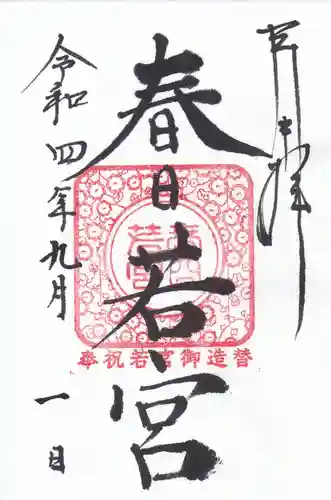 奉拝
春日若宮
令和四年九月一日
奉祝若宮御造替
若宮